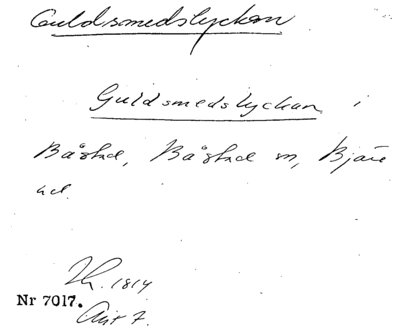 Guldsmedslyckan
Guldsmedslyckan i
Båstad, Båstad sn, Bjäre
hd.
1814
Nr 7017.